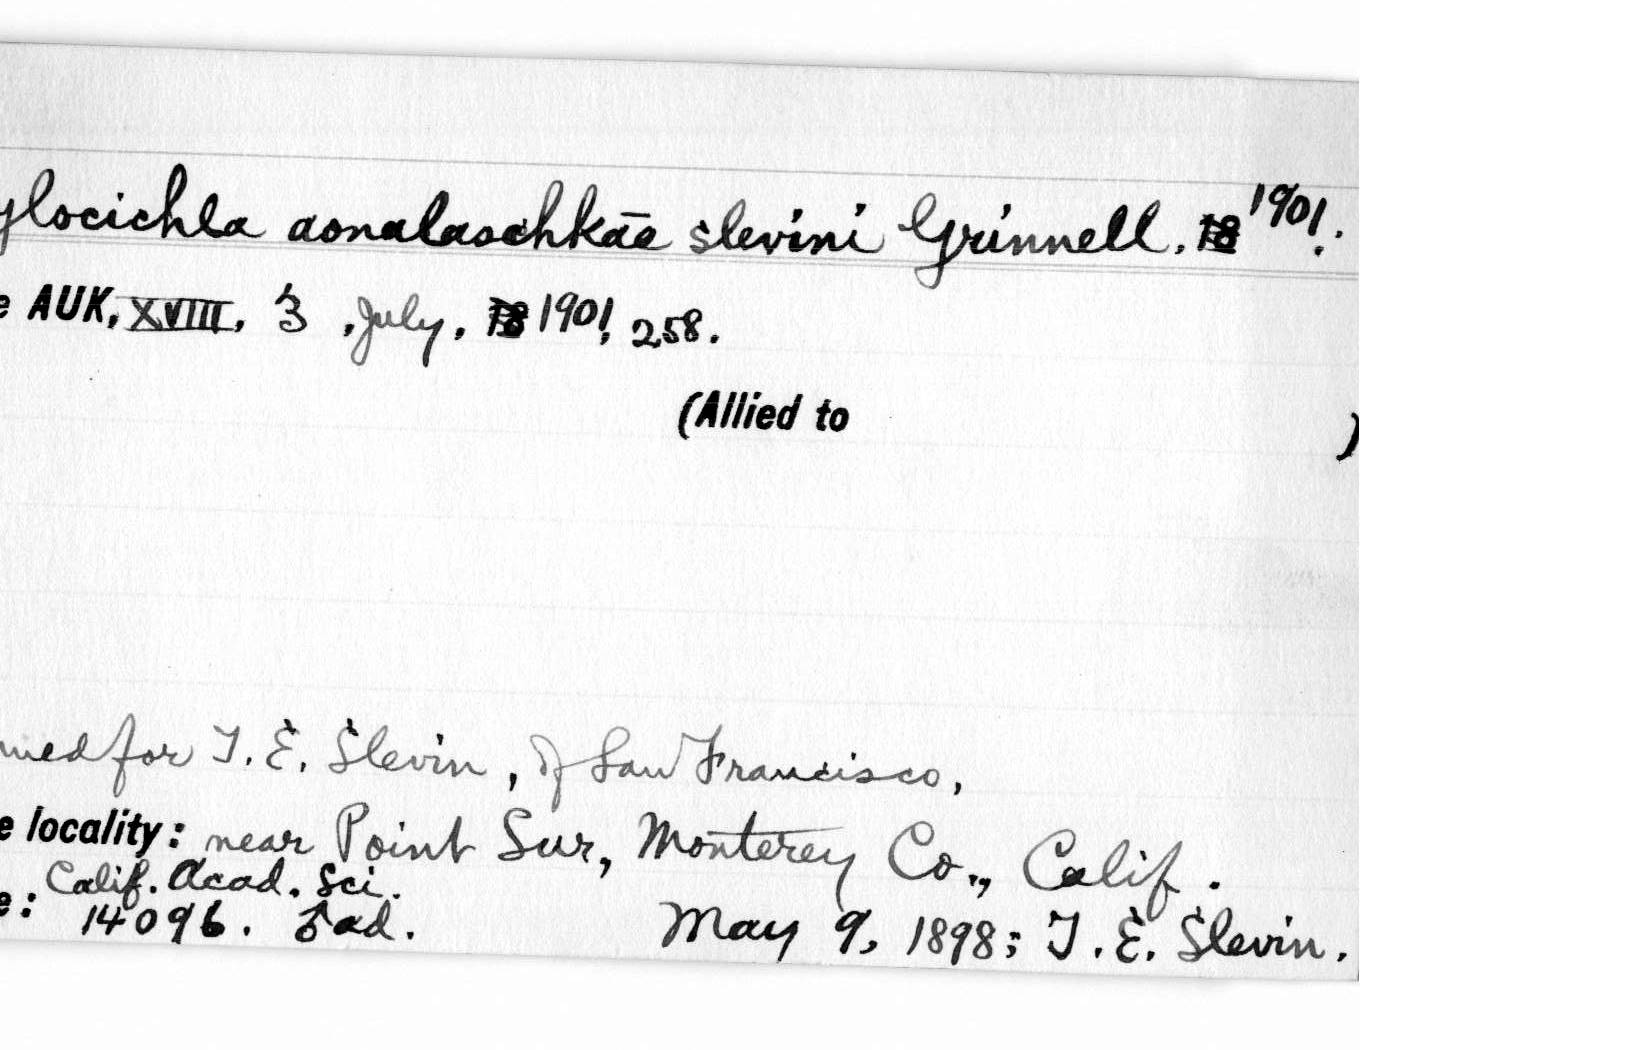 ylocichla aonalaschkae slevini Grinnell, 18 1901.
e AUK, XVIII, 3, July, 18 1901, 258.
(Allied to )
med for T. E. Slevin, of San Francisco,
e locality: near Point Sur, Monterey Co., Calif.
Calif. Acad. Sci.
e: 14096. ♂ ad. May 9, 1898; T. E. Slevin.